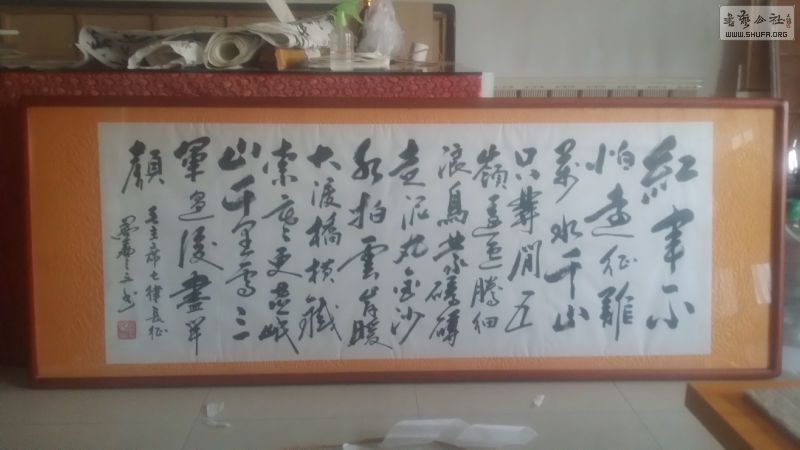 紅軍不
怕遠征難
萬水千山
只等閒五
嶺逶迤騰細
浪烏蒙磅礴
走泥丸金沙
水拍雲崖暖
大渡橋橫鐵
索寒更喜岷
山千里雪三
軍過後盡開
顏
毛主席七律長征
書藝公社
WWW.SHUFA.ORG